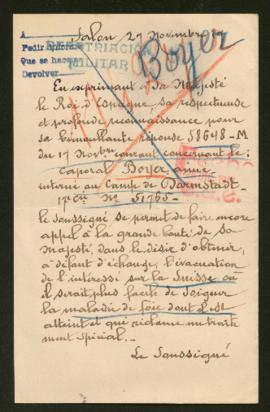 Salon 27 Novembre
A
Pedir informe
Que se hace
Devolver
REPATRIACION
MILITAR
Boyer
En exprimant à Sa Majesté
le Roi d'Espagne sa respectueuse
et profonde reconnaissance pour
sa bienveillante réponse 58648-M
du 17 Novbre courant concernant le
Caporal Boyer,
interné au Camp de Darmstadt
Nº 51765-
le Soussigné se permet de faire encore
appel à la grande bonté de Sa
Majesté, dans le désir d'obtenir,
à défaut d'échange, l'évacuation
de l'intéressé sur la Suisse où
il serait plus facile de soigner
la maladie de foie dont il est
atteint et que réclame un traite
ment spécial.-
Le Soussigné